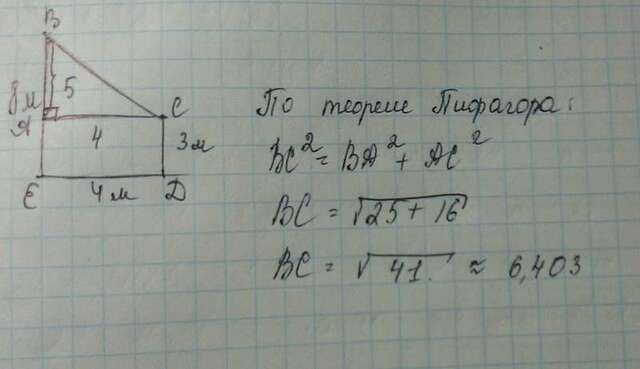 B
8м
5
A
C
4
3м
E
4м
D
По теореме Пифагора:
BC² = BA² + AC²
BC = √25 + 16
BC = √41 ≈ 6,403